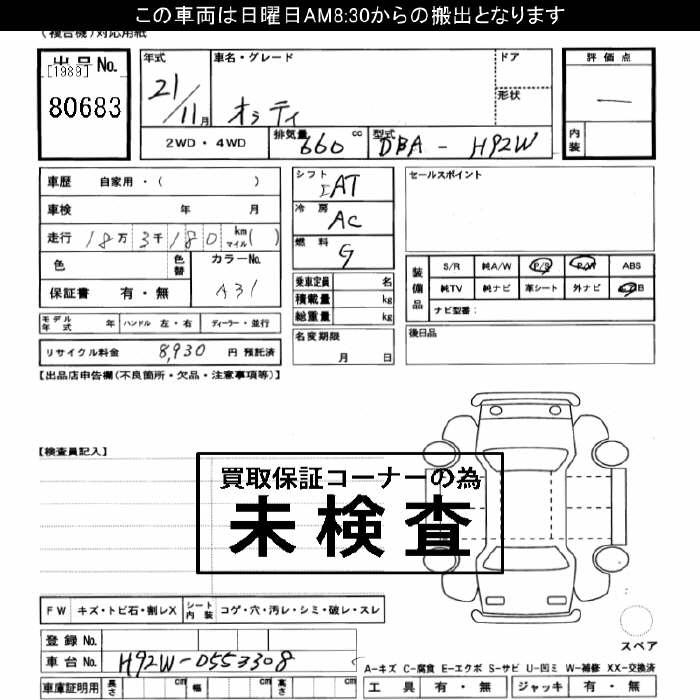 この車両は日曜日AM8:30からの搬出となります
(複合機)対応用紙
出品No.
[1989]
80683
年式
21/11月
車名・グレード
オッティ
ドア
形状
評価点
—
内装
2WD・4WD
排気量 660 cc
型式 DBA - H92W
車歴 自家用・( )
車検 年 月
走行 18万3千180 km マイル( )
色
色替
カラーNo.
A31
保証書 有・無
モデル年式 年 ハンドル 左・右 ディーラー・並行
リサイクル料金 8,930 円 預託済
シフト
IAT
冷房
AC
燃料
G
乗車定員 名
積載量 kg
総重量 kg
名変期限
月 日
セールスポイント
装備品
S/R 純A/W P/S P/W ABS
純TV 純ナビ 革シート 外ナビ B
ナビ型番:
後日品
【出品店申告欄(不良箇所・欠品・注意事項等)】
【検査員記入】
買取保証コーナーの為
未検査
FW キズ・トビ石・割レX シート内装 コゲ・穴・汚レ・シミ・破レ・スレ
スペア
登録No.
車台No. H92W-0553308
車庫証明用 長さ cm 幅 cm 高さ cm
A-キズ C-腐食 E-エクボ S-サビ U-凹ミ W-補修 XX-交換済
工具 有・無 ジャッキ 有・無